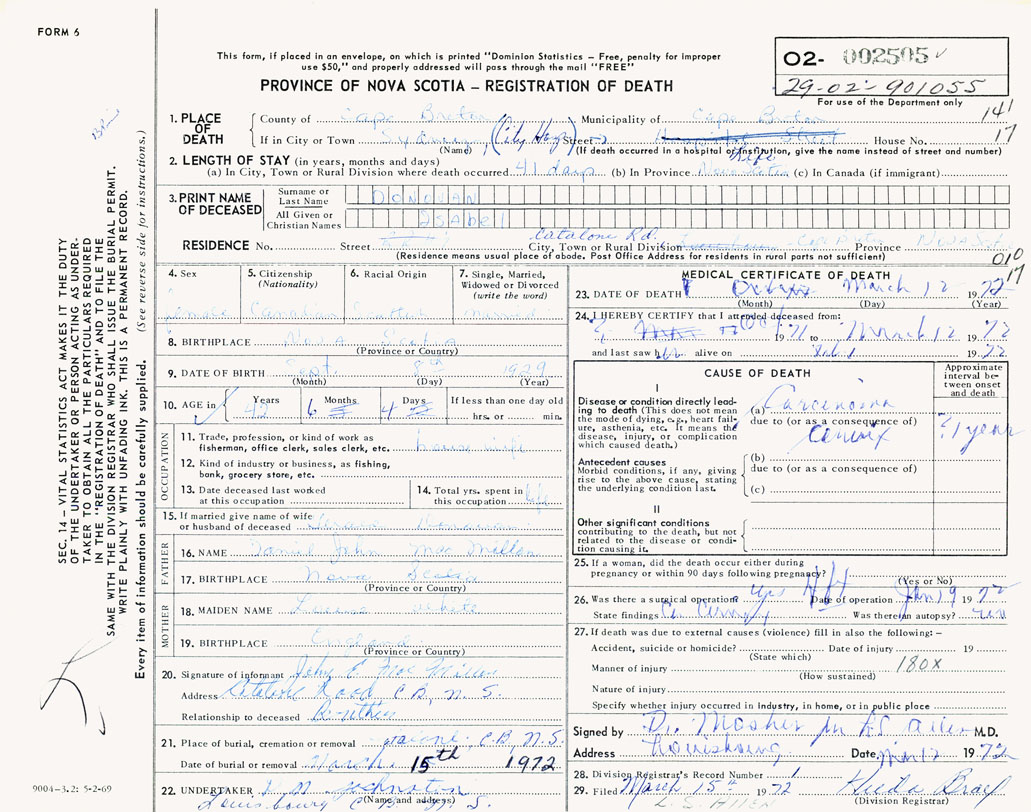 FORM 6
This form, if placed in an envelope, on which is printed "Dominion Statistics – Free, penalty for improper
use $50," and properly addressed will pass through the mail "FREE"
PROVINCE OF NOVA SCOTIA – REGISTRATION OF DEATH
02- 002505
29-02-901055
For use of the Department only
141
17
1. PLACE OF DEATH
County of Cape Breton Municipality of Cape Breton
If in City or Town Sydney, (City Hosp) Street House No.
(Name) (If death occurred in a hospital or institution, give the name instead of street and number)
2. LENGTH OF STAY (in years, months and days)
(a) In City, Town or Rural Division where death occurred 41 days (b) In Province Life Nova Scotia (c) In Canada (if immigrant)
3. PRINT NAME OF DECEASED
Surname or Last Name DONOVAN
All Given or Christian Names Isabel
RESIDENCE No. Street Catalone Rd. City, Town or Rural Division Province Nova Scotia
(Residence means usual place of abode. Post Office Address for residents in rural parts not sufficient)
010
17
4. Sex
Female
5. Citizenship (Nationality)
Canadian
6. Racial Origin
7. Single, Married, Widowed or Divorced (write the word)
Married
8. BIRTHPLACE Nova Scotia
(Province or Country)
9. DATE OF BIRTH Sept. 8th 1929
(Month) (Day) (Year)
10. AGE in Years 42 Months 6 Days 4 If less than one day old hrs. or min.
OCCUPATION
11. Trade, profession, or kind of work as fisherman, office clerk, sales clerk, etc. housewife
12. Kind of industry or business, as fishing, bank, grocery store, etc.
13. Date deceased last worked at this occupation
14. Total yrs. spent in this occupation life
15. If married give name of wife or husband of deceased Donovan
FATHER
16. NAME Daniel John MacMillan
17. BIRTHPLACE Nova Scotia
(Province or Country)
MOTHER
18. MAIDEN NAME White
19. BIRTHPLACE England
(Province or Country)
20. Signature of informant John MacMillan
Address Catalone Road, C.B., N.S.
Relationship to deceased Brother
21. Place of burial, cremation or removal C.B., N.S.
Date of burial or removal March 15th 1972
22. UNDERTAKER Johnston
(Name and address) Louisbourg N.S.
MEDICAL CERTIFICATE OF DEATH
23. DATE OF DEATH March 12 1972
(Month) (Day) (Year)
24. I HEREBY CERTIFY that I attended deceased from:
Oct 1971 to March 12 1972
and last saw her alive on 1972
CAUSE OF DEATH
Approximate interval between onset and death
I
Disease or condition directly leading to death (This does not mean the mode of dying, e.g., heart failure, asthenia, etc. It means the disease, injury, or complication which caused death.)
(a) Carcinoma
due to (or as a consequence of)
Cervix ? 1 year
Antecedent causes
Morbid conditions, if any, giving rise to the above cause, stating the underlying condition last.
(b)
due to (or as a consequence of)
(c)
II
Other significant conditions
contributing to the death, but not related to the disease or condition causing it.
25. If a woman, did the death occur either during
pregnancy or within 90 days following pregnancy?
(Yes or No)
26. Was there a surgical operation? yes Date of operation Jan 19 1972
State findings Was there an autopsy?
27. If death was due to external causes (violence) fill in also the following: –
Accident, suicide or homicide? Date of injury 19
(State which)
Manner of injury 180X
(How sustained)
Nature of injury
Specify whether injury occurred in Industry, in home, or in public place
Signed by Dr. Mosher M.D.
Address Louisbourg Date Mar 12 1972
28. Division Registrar's Record Number 1
29. Filed March 15th 1972
(Division Registrar)
SEC. 14 – VITAL STATISTICS ACT MAKES IT THE DUTY
OF THE UNDERTAKER OR PERSON ACTING AS UNDER-
TAKER TO OBTAIN ALL THE PARTICULARS REQUIRED
IN THE "REGISTRATION OF DEATH" AND TO FILE THE
SAME WITH THE DIVISION REGISTRAR WHO SHALL ISSUE THE BURIAL PERMIT.
WRITE PLAINLY WITH UNFADING INK. THIS IS A PERMANENT RECORD.
Every item of information should be carefully supplied. (See reverse side for instructions.)
9004-3.2: 5-2-69